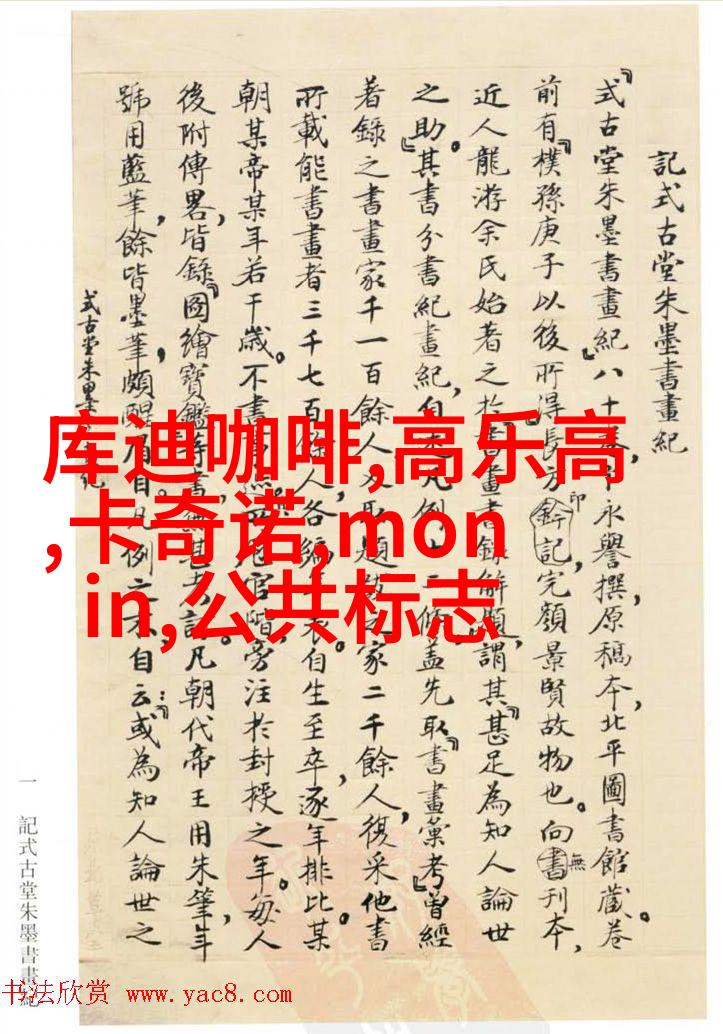 記式古堂朱墨書畫紀
『式古堂朱墨書畫紀』八十 永譽撰,原稿本,北平圖書館藏。卷
前有『樸孫庚子以後所得』長方鈐印記,完顏景賢故物也。向無書刊本,
近人龍游余氏始著之於『書畫書錄解題』,謂其『甚足為知人論世
之助。』其書分書紀畫紀,自 凡例十二條,蓋先取『書畫彙考』曾經
著錄之書畫家千一百餘人,又 題跋之家二千餘人,復采他書
所載能書畫者三千七百餘人,各編年表。自生至卒,逐年排比。某
朝某帝某年若干歲。不書事 官階,旁注於封授之年。每人
後附傳畧,皆錄『圖繪寶鑑』等書,無甚 凡朝代帝王用朱筆,年
號用藍筆,餘皆墨筆,頗醒眉目。凡例 自云:『或為知人論世之
式古堂朱墨 紀
一 記式古堂朱墨書畫紀
库迪咖啡,高乐高
,卡奇诺,mon
in,公共标志
书法欣赏 www.yac8.com